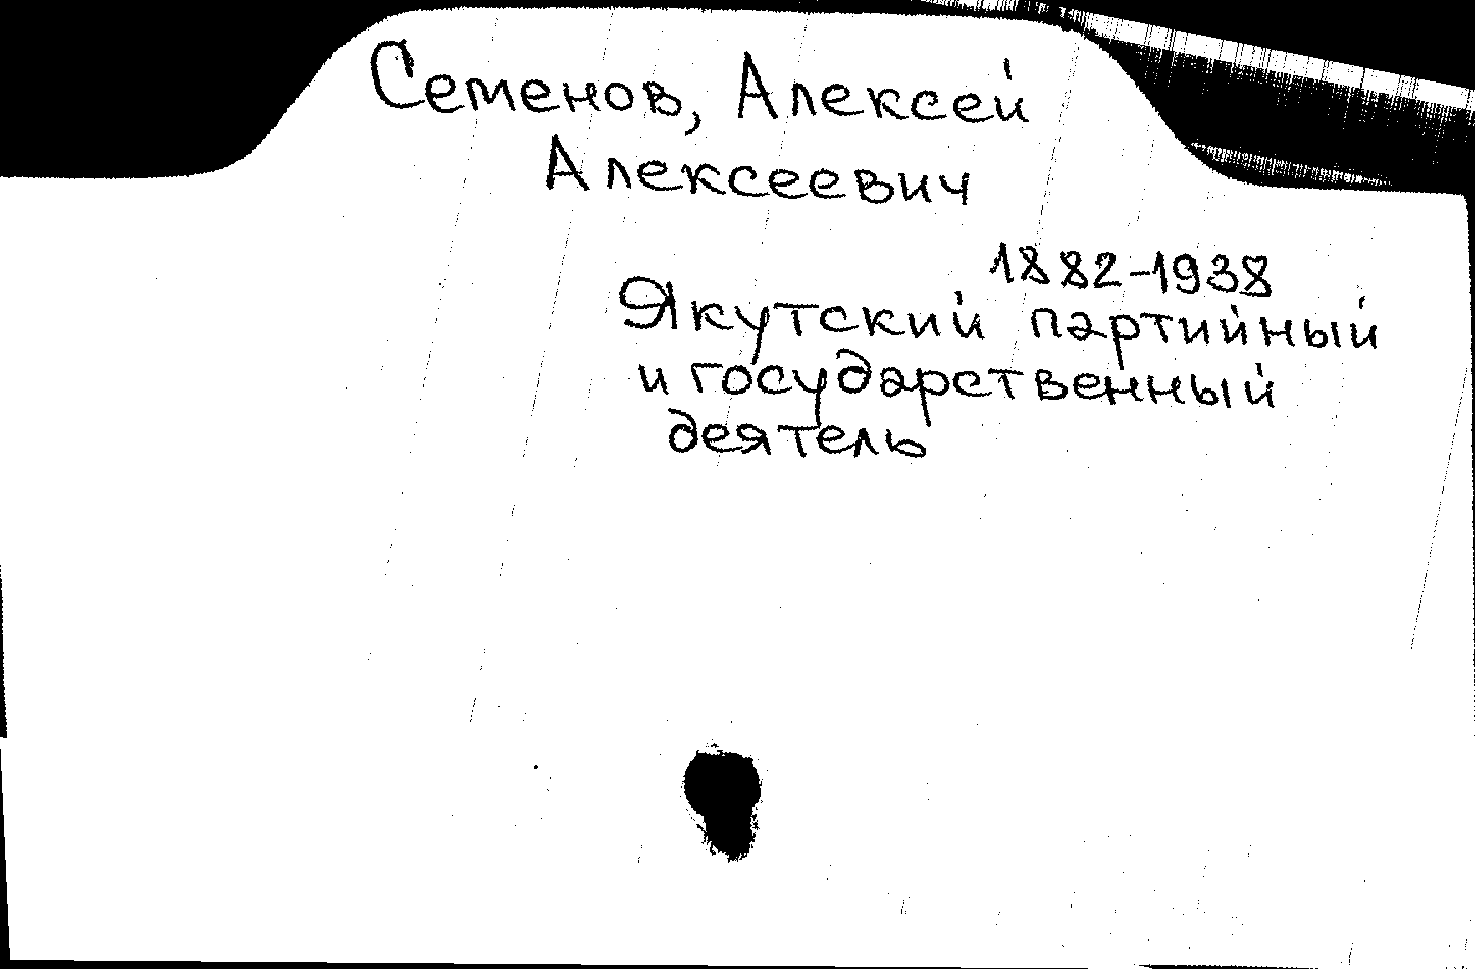 Семенов, Алексей
Алексеевич
1882-1938
Якутский партийный
и государственный
деятель